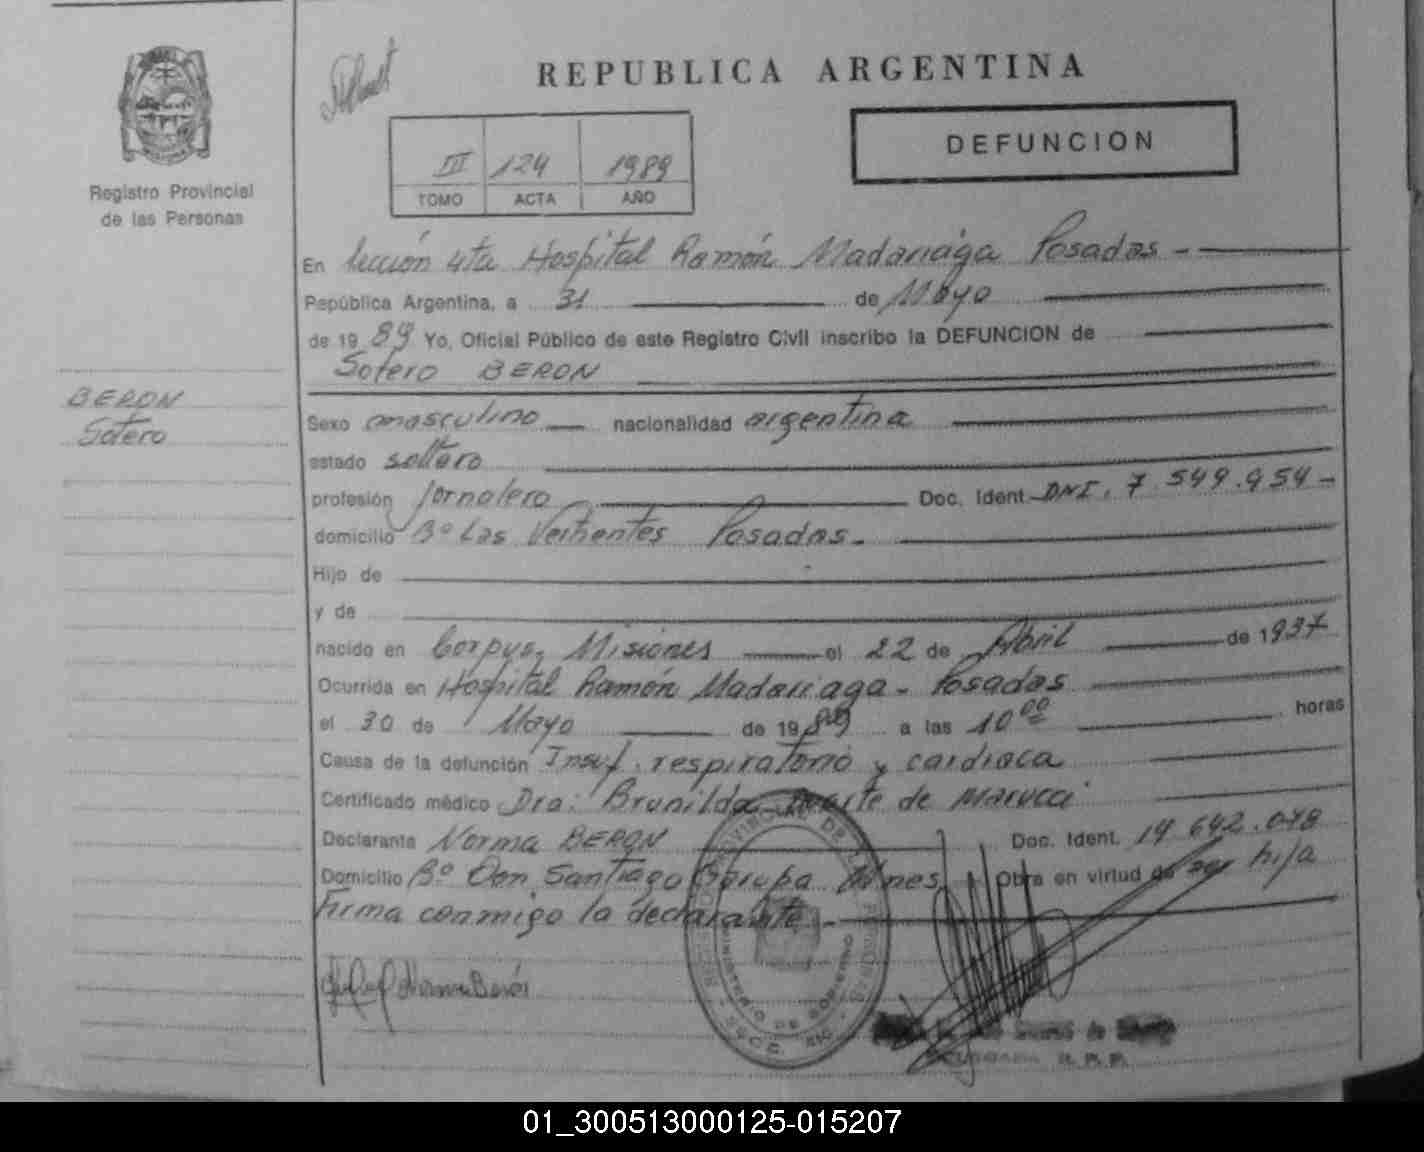 REPUBLICA ARGENTINA
DEFUNCION
III 124 1989
TOMO ACTA AÑO
Registro Provincial
de las Personas
BERON
Sotero
En Sección 4ta Hospital Ramón Madariaga Posadas -
República Argentina, a 31 de Mayo
de 19 89 Yo, Oficial Público de este Registro Civil inscribo la DEFUNCION de
Sotero BERON
Sexo masculino nacionalidad argentina
estado soltero
profesión Jornalero Doc. Ident. DNI. 7.549.954-
domicilio Bº Las Vertientes Posadas.
Hijo de
y de
nacido en Corpus, Misiones el 22 de Abril de 1937
Ocurrida en Hospital Ramón Madariaga - Posadas
el 30 de Mayo de 1989 a las 10 00 horas
Causa de la defunción Insuf. respiratorio y cardiaca
Certificado médico Dra: Brunilda de Marucci
Declarante Norma BERON Doc. Ident. 14.642.048
Domicilio Bº Don Santiago Garupa Mnes Obra en virtud de ser hija
Firma conmigo la declarante -
Norma Berón
REGISTRO PROVINCIAL DE LAS PERSONAS
MINISTERIO DE GOBIERNO
R. P. P.
01_300513000125-015207